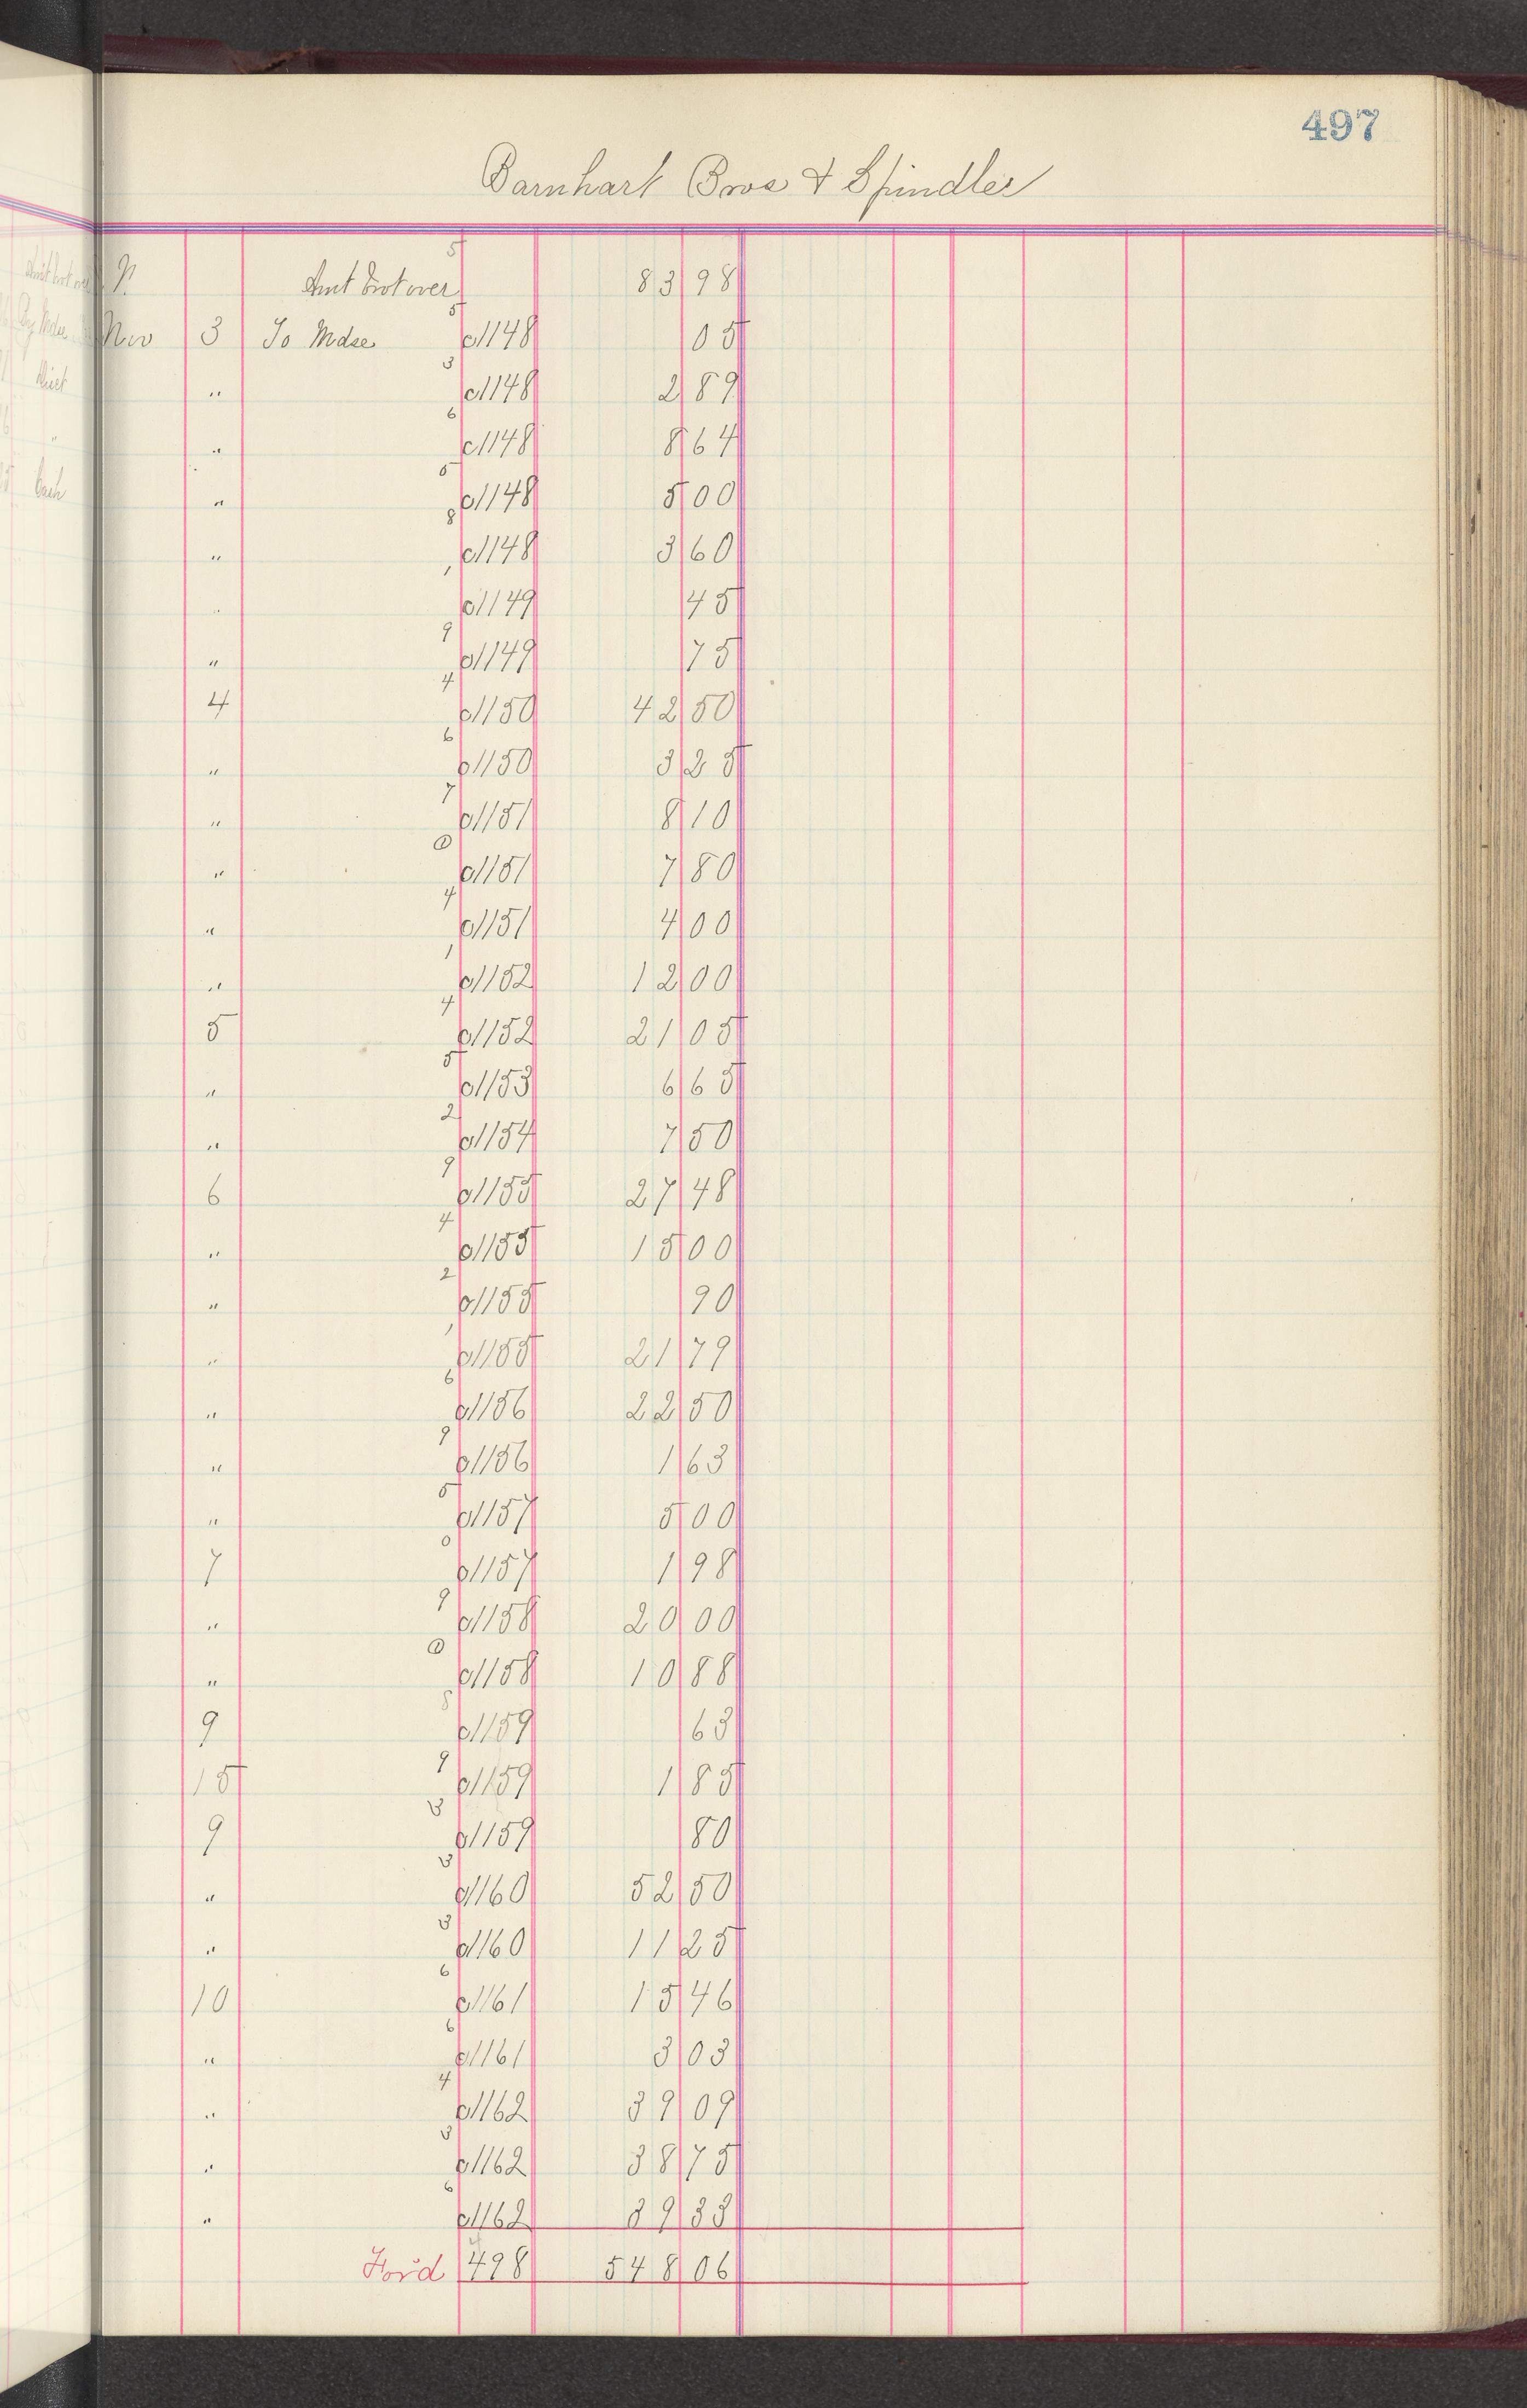 497
Barnhart Bros & Spindler
5
Amt brot over 83 98
5
Nov 3 To Mdse c1148 05
3
" c1148 2 89
6
" c1148 8 64
5
" c1148 5 00
8
" c1148 3 60
1
" c1149 45
9
" c1149 75
4
4 c1150 42 50
6
" c1150 3 25
7
" c1151 8 10
0
" c1151 7 80
4
" c1151 4 00
1
" c1152 12 00
4
5 c1152 21 05
5
" c1153 6 65
2
" c1154 7 50
9
6 c1155 27 48
4
" c1155 15 00
2
" c1155 90
1
" c1155 21 79
6
" c1156 22 50
9
" c1156 1 63
5
" c1157 5 00
0
7 c1157 1 98
9
" c1158 20 00
0
" c1158 10 88
8
9 c1159 63
9
15 c1159 1 85
3
9 c1159 80
3
" c1160 52 50
3
" c1160 11 25
6
10 c1161 15 46
6
" c1161 3 03
4
" c1162 39 09
3
" c1162 38 75
6
" c1162 39 33
For'd 498 548 06